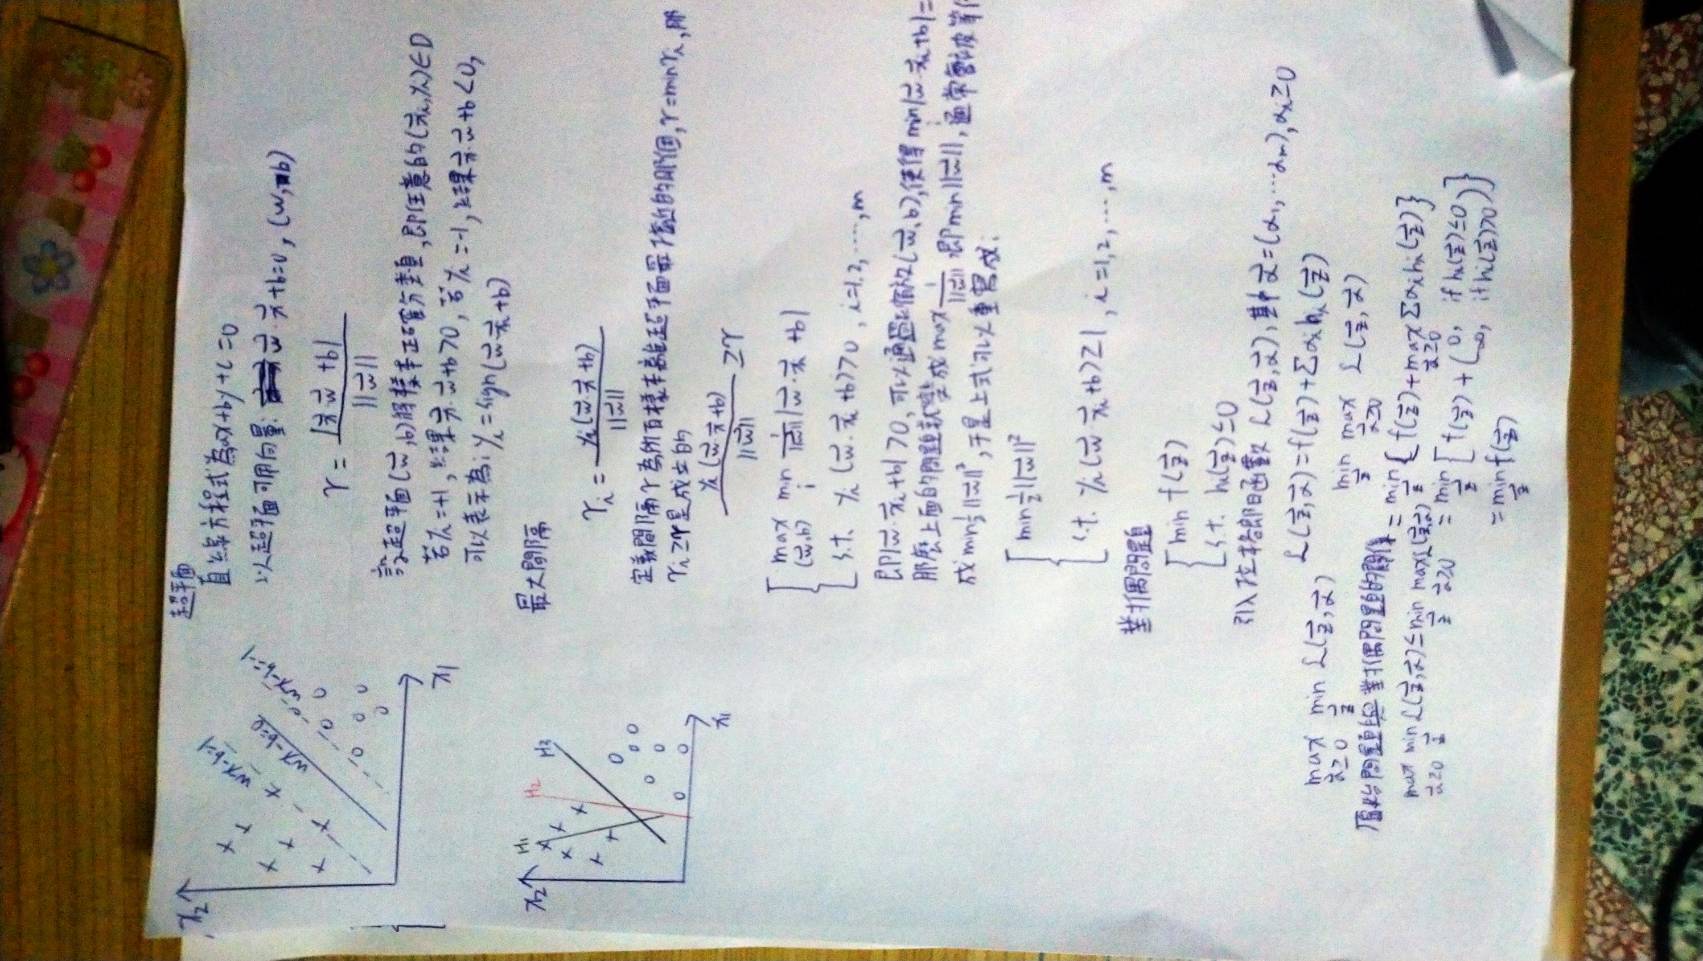 x2
wx-b=1
wx-b=0
wx-b=-1
x1
超平面
直線方程式為ax+by+c=0
以超平面可用向量: w⃗·x⃗+b=0, (w, b)
r = |x⃗·w⃗ +b| / ||w⃗||
設超平面(w⃗,b)將樣本正確分類,即任意的(x⃗ᵢ,yᵢ)∈D
若yᵢ=+1,結果x⃗·w⃗+b>0,若yᵢ=-1,結果x⃗·w⃗+b<0,
可以表示為: yᵢ=sign(w⃗·x⃗ᵢ+b)
x2
H1
H2
H3
x1
最大間隔
rᵢ = yᵢ(w⃗·x⃗+b) / ||w⃗||
定義間隔r為所有樣本離超平面最接近的那個,r=min rᵢ,那
rᵢ≥r是成立的
yᵢ(w⃗·x⃗+b) / ||w⃗|| ≥r
max(w⃗,b) min i 1/||w⃗|| |w⃗·x⃗ᵢ +b|
s.t. yᵢ(w⃗·x⃗ᵢ+b)>0, i=1,2,……,m
即|w⃗·x⃗ᵢ+b|>0,可以通過縮放(w⃗,b),使得 min i |w⃗·x⃗ᵢ+b|=
那麼上面的問題就變成max 1/||w⃗||,即min||w⃗||,通常會被等
成min½||w⃗||²,于是上式可以重寫成:
min½||w⃗||²
s.t. yᵢ(w⃗·x⃗ᵢ+b)≥1, i=1,2,…,m
對偶問題
min f(z⃗)
s.t. hᵢ(z⃗)≤0
引入拉格郎日函數 L(z⃗,α⃗),其中α⃗=(α₁,…αₘ),αᵢ≥0
L(z⃗,α⃗)=f(z⃗)+Σαᵢhᵢ(z⃗)
max α⃗≥0 min z⃗ L(z⃗,α⃗)
min z⃗ max α⃗≥0 L(z⃗,α⃗)
原始問題與對偶問題的關係
= min z⃗ {f(z⃗)+max α⃗≥0 Σαᵢhᵢ(z⃗)}
max α⃗≥0 min z⃗ L(z⃗,α⃗)≤min z⃗ max α⃗≥0 L(z⃗,α⃗)
= min z⃗ [f(z⃗)+(0, if hᵢ(z⃗)≤0
∞, if hᵢ(z⃗)>0)}
= min z⃗ f(z⃗)